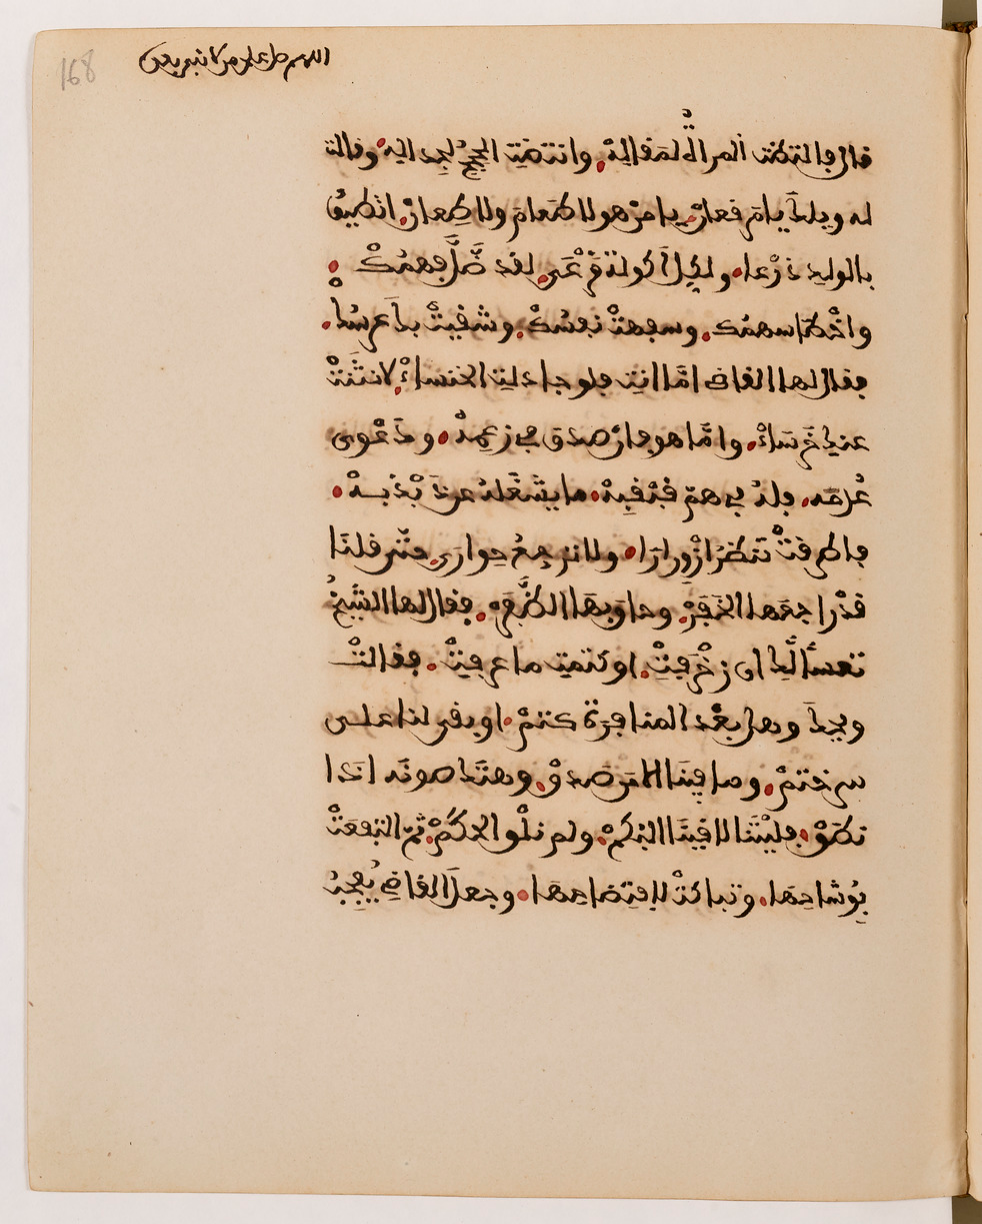 اللهم صل على من لا نبي بعده
168
قال فالتظت المرأة لمقاله وانتضت الحجج لجداله وقالت
له ويلك يا مرقعان يا من هو لا طعام ولا طعان اتضيق
بالولد ذرعا ولكل اكولة مرعى لقد ضل فهمك
واخطا سهمك وسفهت نفسك وشقيت بك عرسك
فقال لها القاضي اما انت فلو جادلت الخنساء لانثنت
عنك خرساء واما هو فان صدق في زعمه ودعوى
عدمه فله في هم قبقبه ما يشغله عن ذبذبه
فاطرقت تنظر ازورارا ولا ترجع حوارا حتى قلنا
قد راجعها الخفر وحاق بها الظفر فقال لها الشيخ
تعسا لك ان زخرفت او كتمت ما عرفت فقالت
ويحك وهل بعد المنافرة كتم او بقي لنا على
سر ختم وما فينا الا من صدق وهتك صونه اذا
نطق فليتنا لاقينا البكم ولم نلق الحكم ثم التفعت
بوشاحها وتباكت لافتضاحها وجعل القاضي يعجب